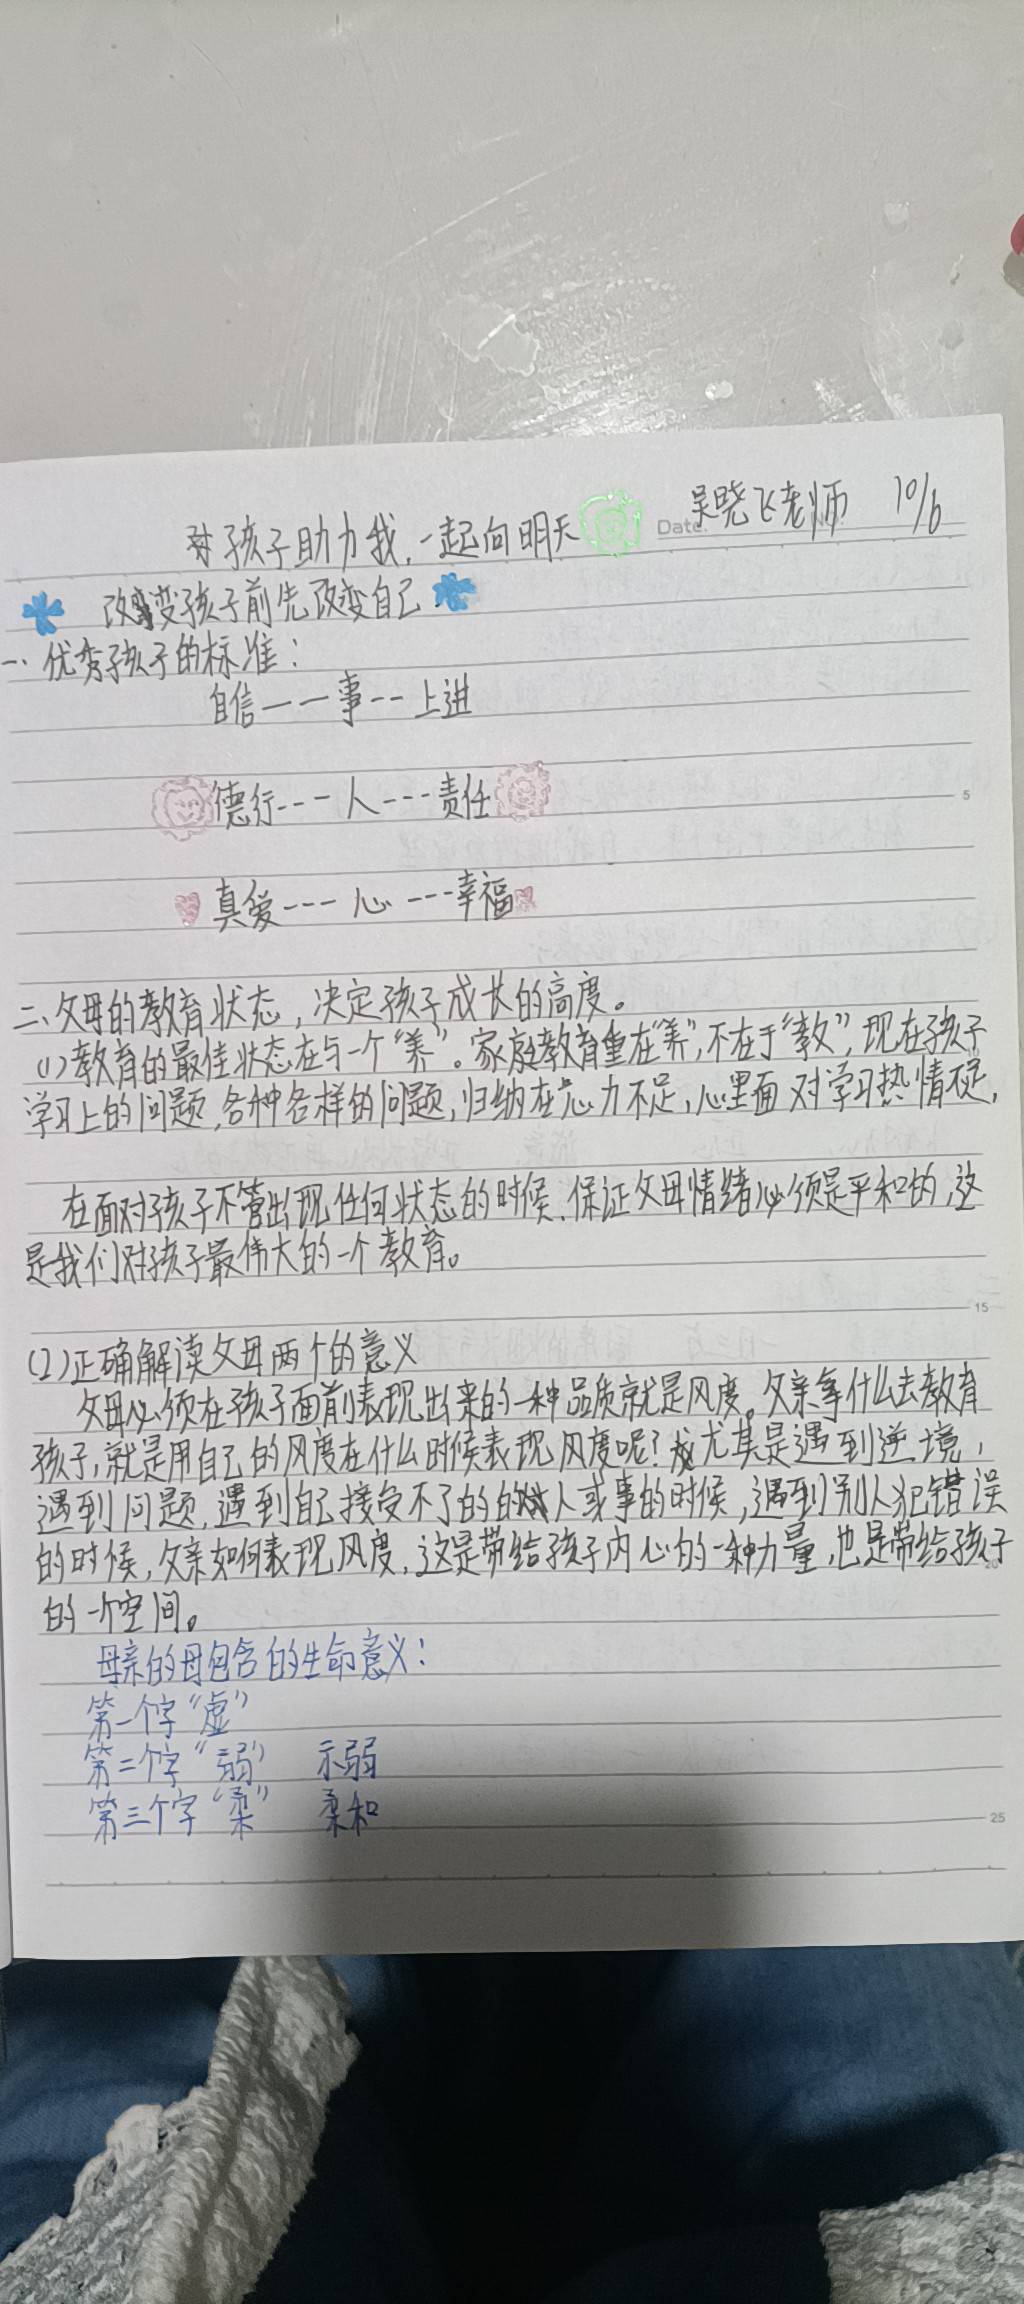 孩子助力我,一起向明天 Date. 吴晓飞老师 10/6
改变孩子前先改变自己
一、优秀孩子的标准:
自信——事--上进
德行---人---责任
5
真爱---心---幸福
二、父母的教育状态,决定孩子成长的高度。
(1)教育的最佳状态在与一个“养”。家庭教育重在“养”,不在于“教”,现在孩子
学习上的问题,各种各样的问题,归纳在心力不足,心里面对学习热情不足,
在面对孩子不管出现任何状态的时候,保证父母情绪必须是平和的,这
是我们对孩子最伟大的一个教育。
15
(2)正确解读父母两个的意义
父母必须在孩子面前表现出来的一种品质就是风度。父亲拿什么去教育
孩子,就是用自己的风度在什么时候表现风度呢?尤其是遇到逆境,
遇到问题,遇到自己接受不了的的人或事的时候,遇到别人犯错误
的时候,父亲如何表现风度,这是带给孩子内心的一种力量,也是带给孩子
20
的一个空间。
母亲的母包含的生命意义:
第一个字“虚”
第二个字“弱” 示弱
第三个字“柔” 柔和
25